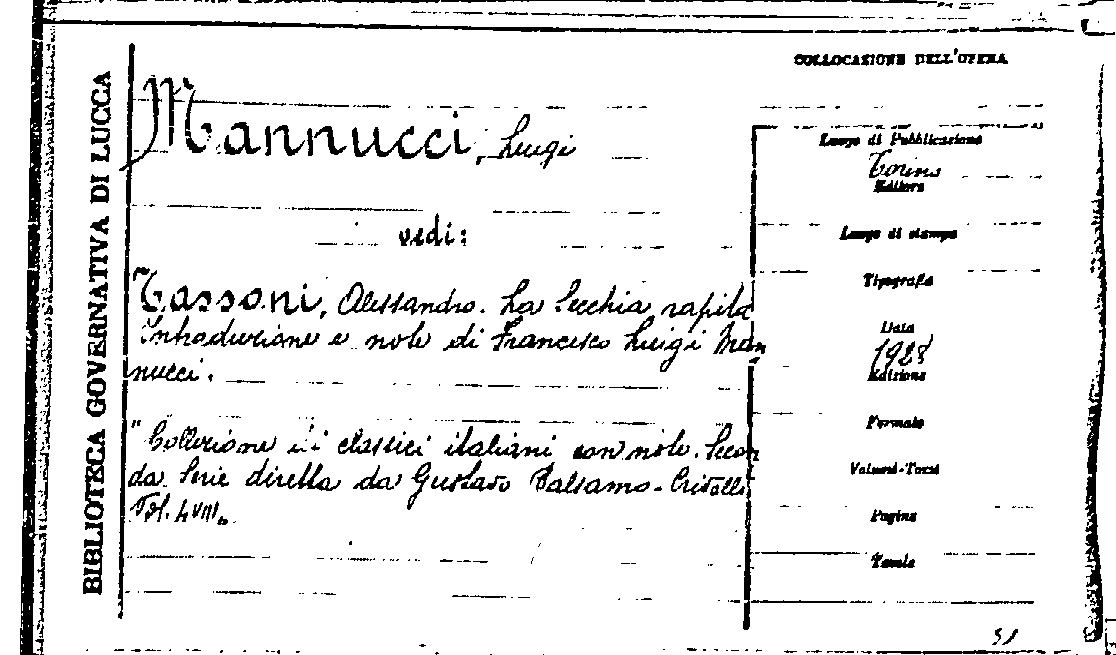 BIBLIOTECA GOVERNATIVA DI LUCCA
COLLOCAZIONE DELL'OPERA
Mannucci, Luigi
vedi:
Tassoni, Alessandro. La Secchia rapita
Introduzione e note di Francesco Luigi Man
nucci.
"Collezione di classici italiani con note. Secon
da Serie diretta da Gustavo Balsamo-Crivelli
Vol. LVIII.
Luogo di Pubblicazione
Torino
Editore
Luogo di stampa
Tipografia
Data
1928
Edizione
Formato
Volumi-Tomi
Pagine
Tavole